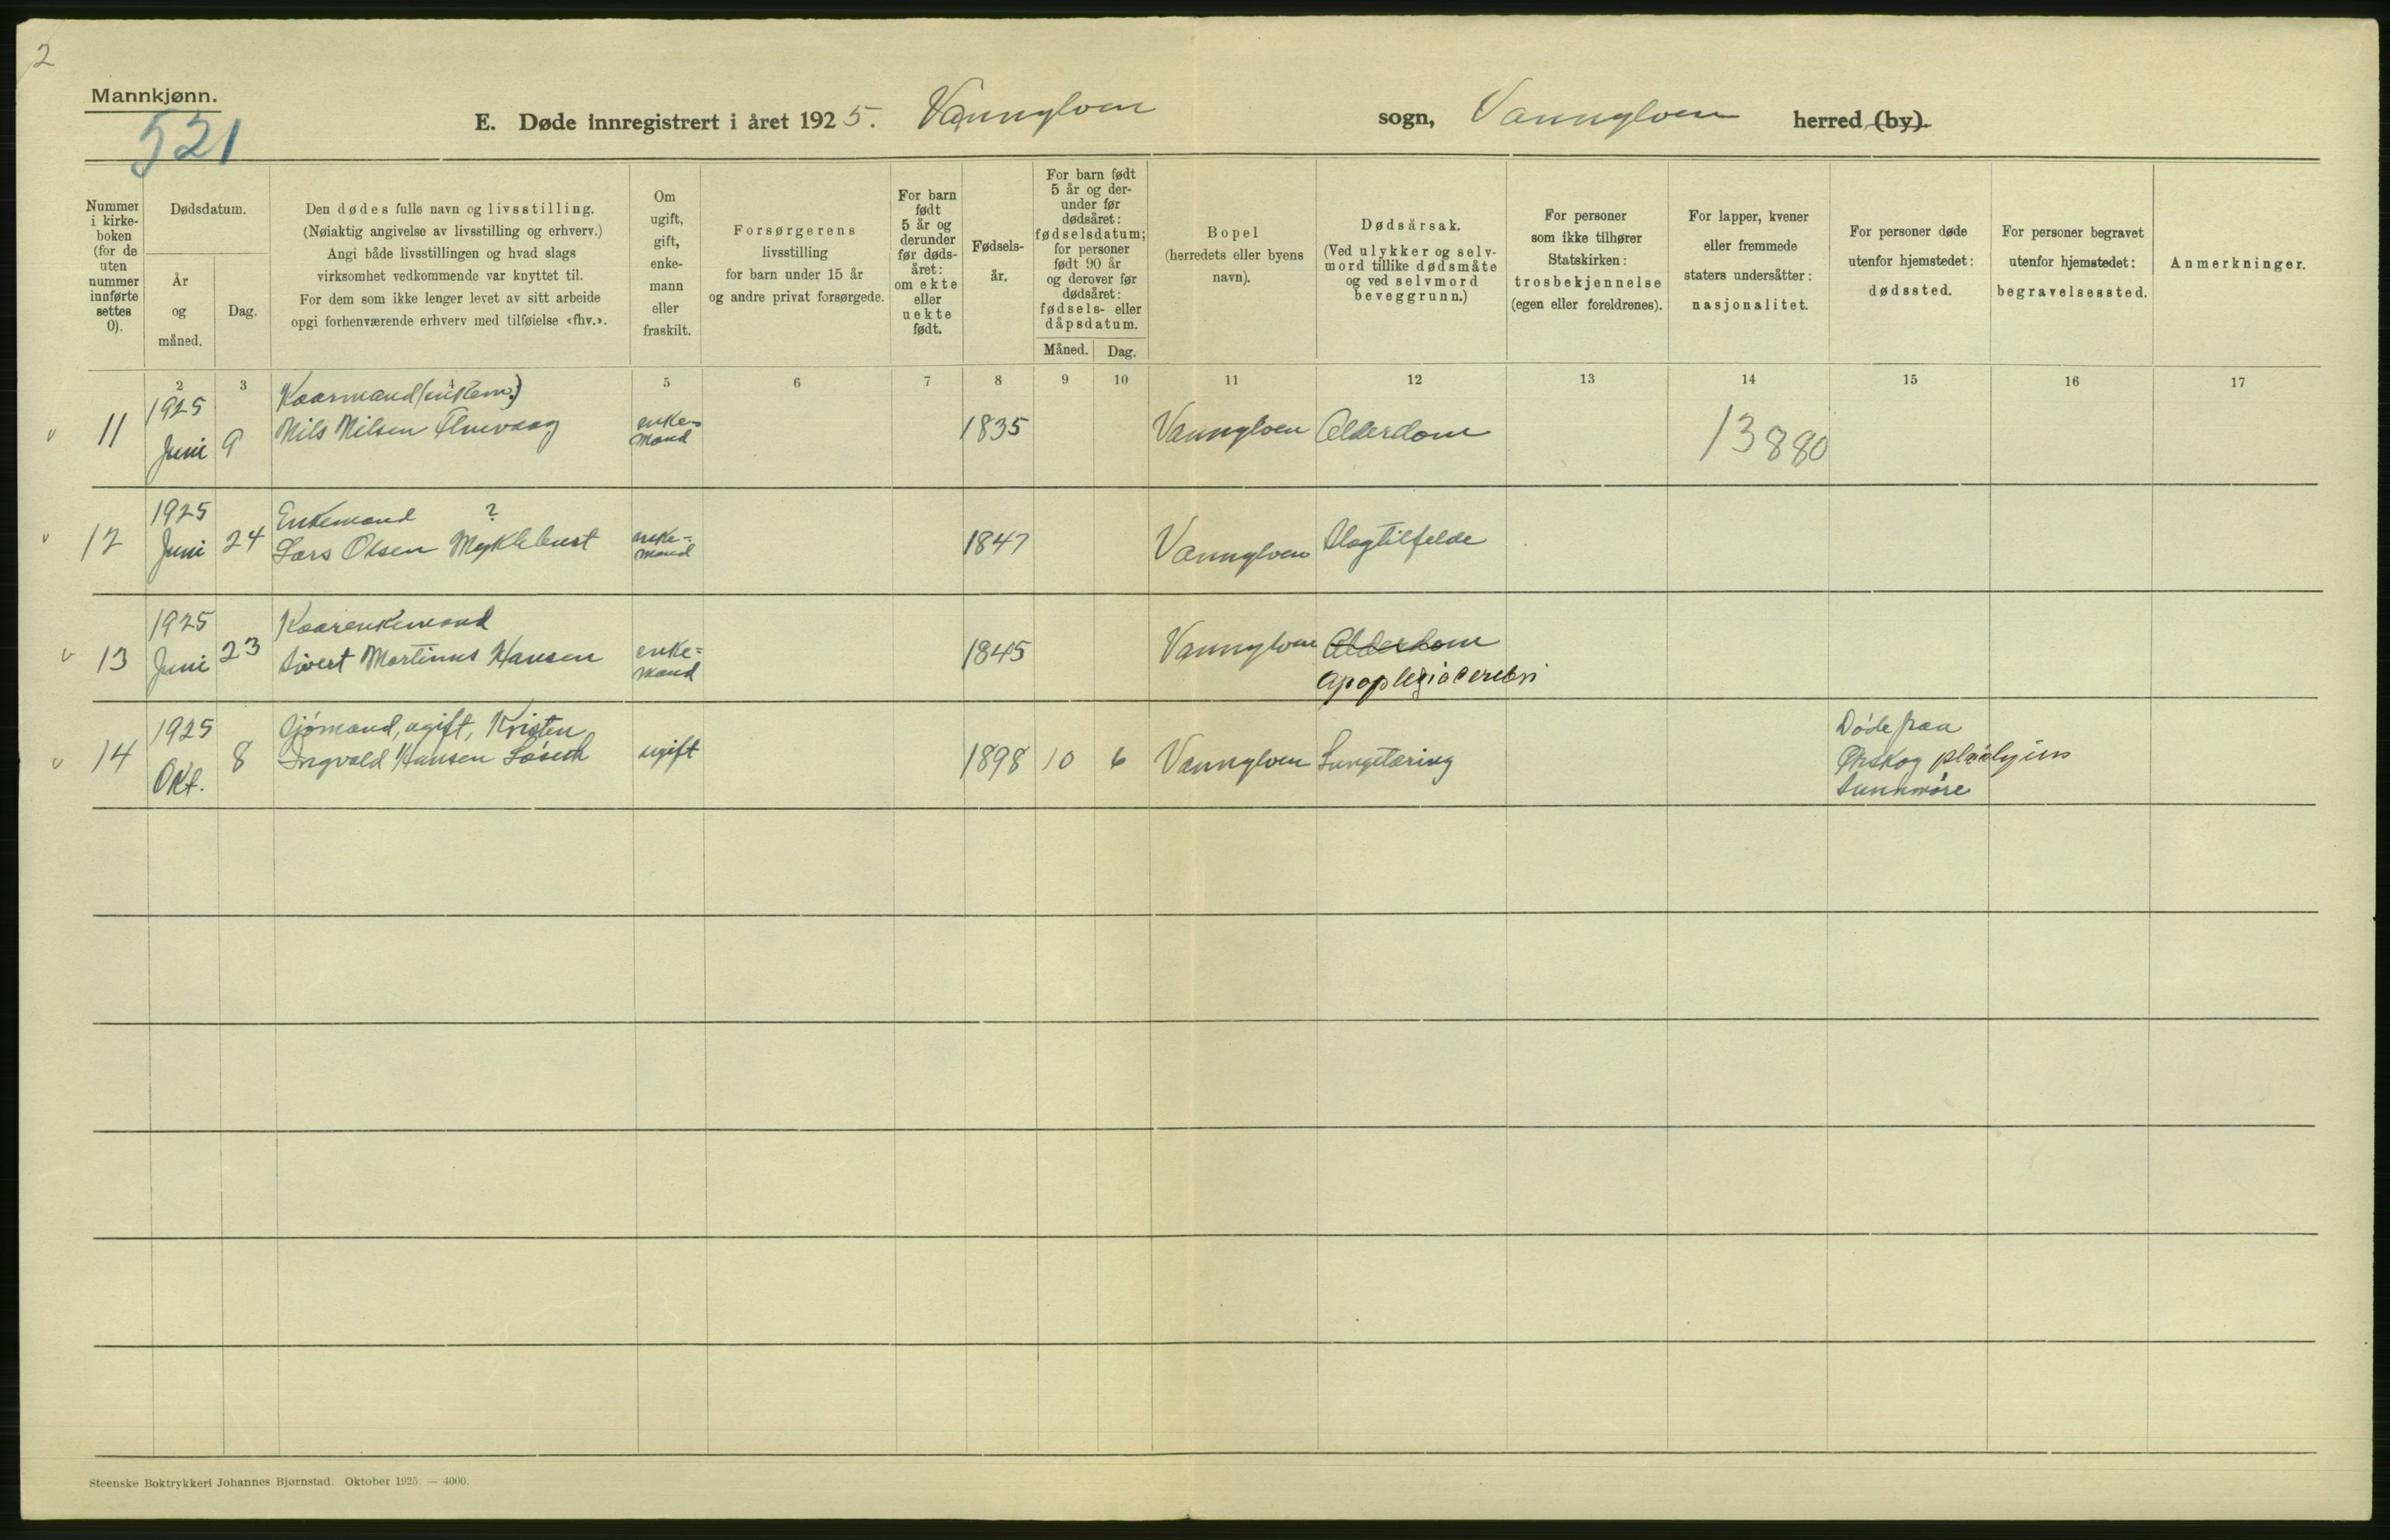 2
Mannkjønn.
521
E. Døde innregistrert i året 1925. Vannylven sogn, Vannylven herred (by).
Nummer i kirke-boken (for de uten nummer innførte settes 0).
Dødsdatum.
År og måned.
Dag.
Den dødes fulle navn og livsstilling.
(Nøiaktig angivelse av livsstilling og erhverv.)
Angi både livsstillingen og hvad slags
virksomhet vedkommende var knyttet til.
For dem som ikke lenger levet av sitt arbeide
opgi forhenværende erhverv med tilføielse «fhv.».
Om ugift, gift, enke-mann eller fraskilt.
Forsørgerens
livsstilling
for barn under 15 år
og andre privat forsørgede.
For barn født 5 år og derunder før døds-året: om ekte eller uekte født.
Fødsels-år.
For barn født 5 år og der-under før dødsåret: fødselsdatum; for personer født 90 år og derover før dødsåret: fødsels- eller dåpsdatum.
Måned.
Dag.
Bopel
(herredets eller byens navn).
Dødsårsak.
(Ved ulykker og selv-mord tillike dødsmåte og ved selvmord beveggrunn.)
For personer som ikke tilhører Statskirken: trosbekjennelse (egen eller foreldrenes).
For lapper, kvener eller fremmede staters undersåtter: nasjonalitet.
For personer døde utenfor hjemstedet: dødssted.
For personer begravet utenfor hjemstedet: begravelsessted.
Anmerkninger.
2 3 4 5 6 7 8 9 10 11 12 13 14 15 16 17
v 11 1925 Juni 9 Kaarmand (enkem.)
Nils Nilsen enke-mand 1835 Vannylven Alderdom 13880
v 12 1925 Juni 24 Enkemand ?
Lars Olsen Myklebust enke-mand 1847 Vannylven Slagtilfelde
v 13 1925 Juni 23 Kaarenkemand
Sivert Martinus Hansen enke-mand 1845 Vannylven Alderdom
Apoplexia cerebri
v 14 1925 Okt. 8 Sjómand, ugift, Kristen
Ingvald Hansen Lóseth ugift 1898 10 6 Vannylven Lungetæring
Dóde paa
Ørskog pleiehjem
Sunnmóre
Steenske Boktrykkeri Johannes Bjørnstad. Oktober 1925. — 4000.